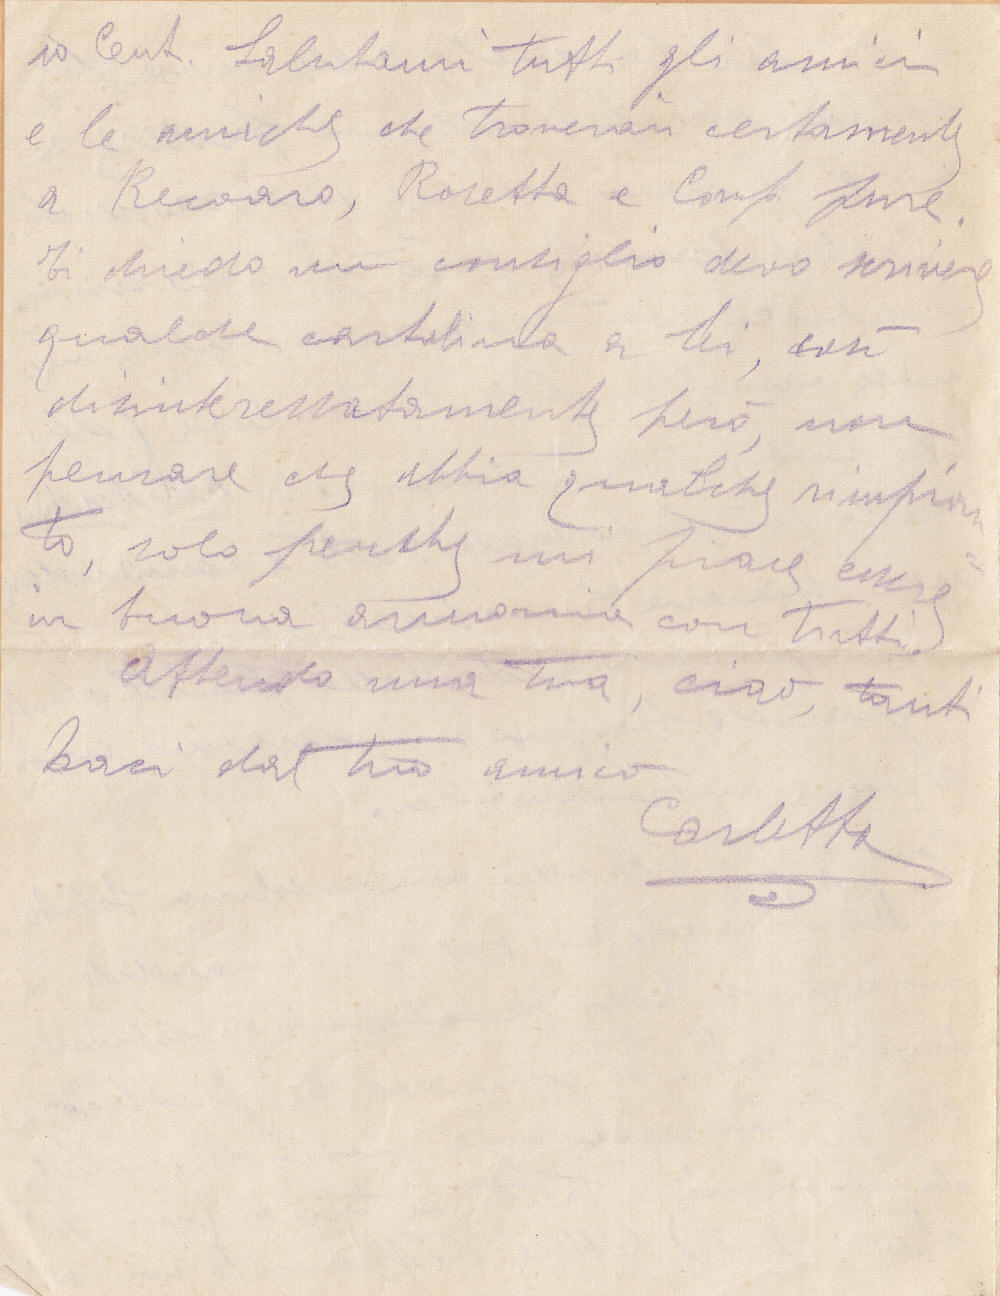 10 Cent. Salutami tutti gli amici
e le amiche che troverai certamente
a Recoaro, Rosetta e Comp. pure.
Ti chiedo un consiglio devo scrivere
qualche cartolina a lei, così
disinteressatamente però, non
pensare che abbia qualche rimpian
to, solo perchè mi piace essere
in buona armonia con tutti.
Attendo una tua, ciao, tanti
baci dal tuo amico
Carletto